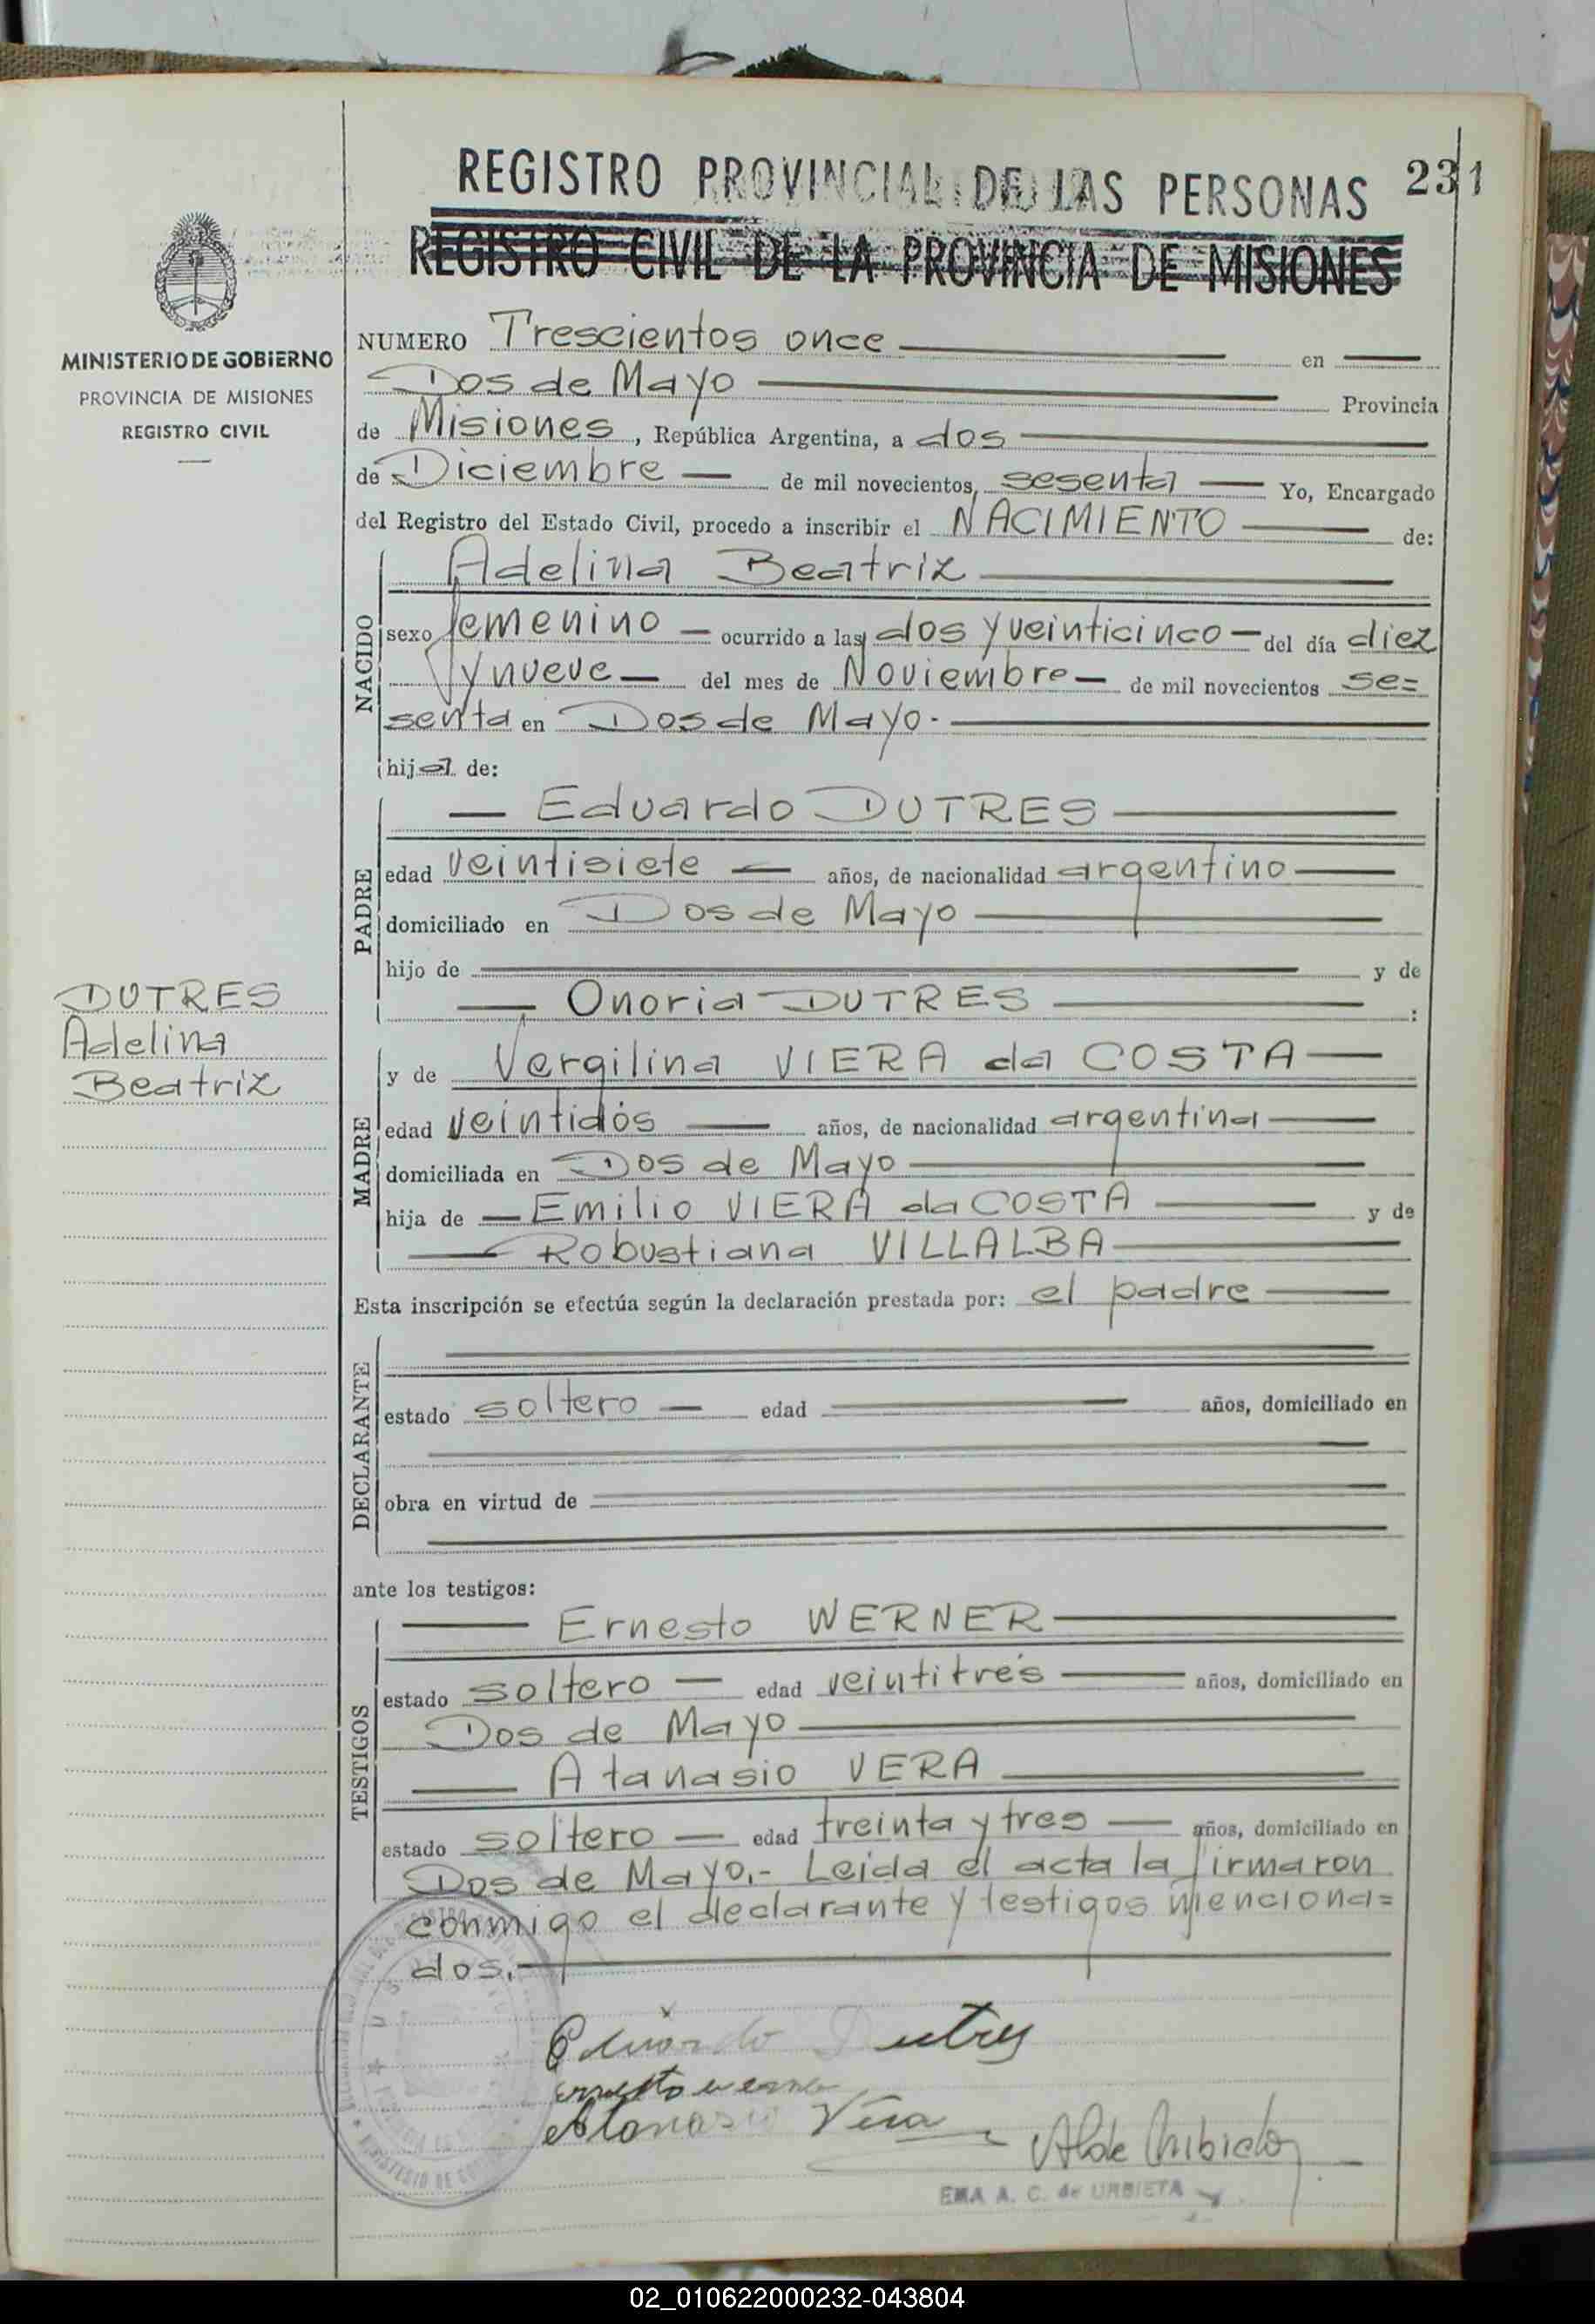 REGISTRO PROVINCIAL DE LAS PERSONAS 231
REGISTRO CIVIL DE LA PROVINCIA DE MISIONES
MINISTERIO DE GOBIERNO
PROVINCIA DE MISIONES
REGISTRO CIVIL
NUMERO Trescientos once en
Dos de Mayo Provincia
de Misiones, República Argentina, a dos
de Diciembre de mil novecientos, sesenta Yo, Encargado
del Registro del Estado Civil, procedo a inscribir el NACIMIENTO de:
NACIDO
Adelina Beatriz
sexo femenino ocurrido a las dos y veinticinco del día diez
y nueve del mes de Noviembre de mil novecientos se=
senta en Dos de Mayo.
hija de:
PADRE
Eduardo DUTRES
edad veintisiete años, de nacionalidad argentino
domiciliado en Dos de Mayo
hijo de y de
Onoria DUTRES :
DUTRES
Adelina
Beatriz
MADRE
y de Vergilina VIERA da COSTA
edad veintidós años, de nacionalidad argentina
domiciliada en Dos de Mayo
hija de Emilio VIERA da COSTA y de
Robustiana VILLALBA
Esta inscripción se efectúa según la declaración prestada por: el padre
DECLARANTE
estado soltero edad años, domiciliado en
obra en virtud de
ante los testigos:
TESTIGOS
Ernesto WERNER
estado soltero edad veintitrés años, domiciliado en
Dos de Mayo
Atanasio VERA
estado soltero edad treinta y tres años, domiciliado en
Dos de Mayo.- Leida el acta la firmaron
conmigo el declarante y testigos menciona=
dos.
Eduardo Dutres
Ernesto Werner
Atanasio Vera
EMA A. C. de URBIETA
02_010622000232-043804